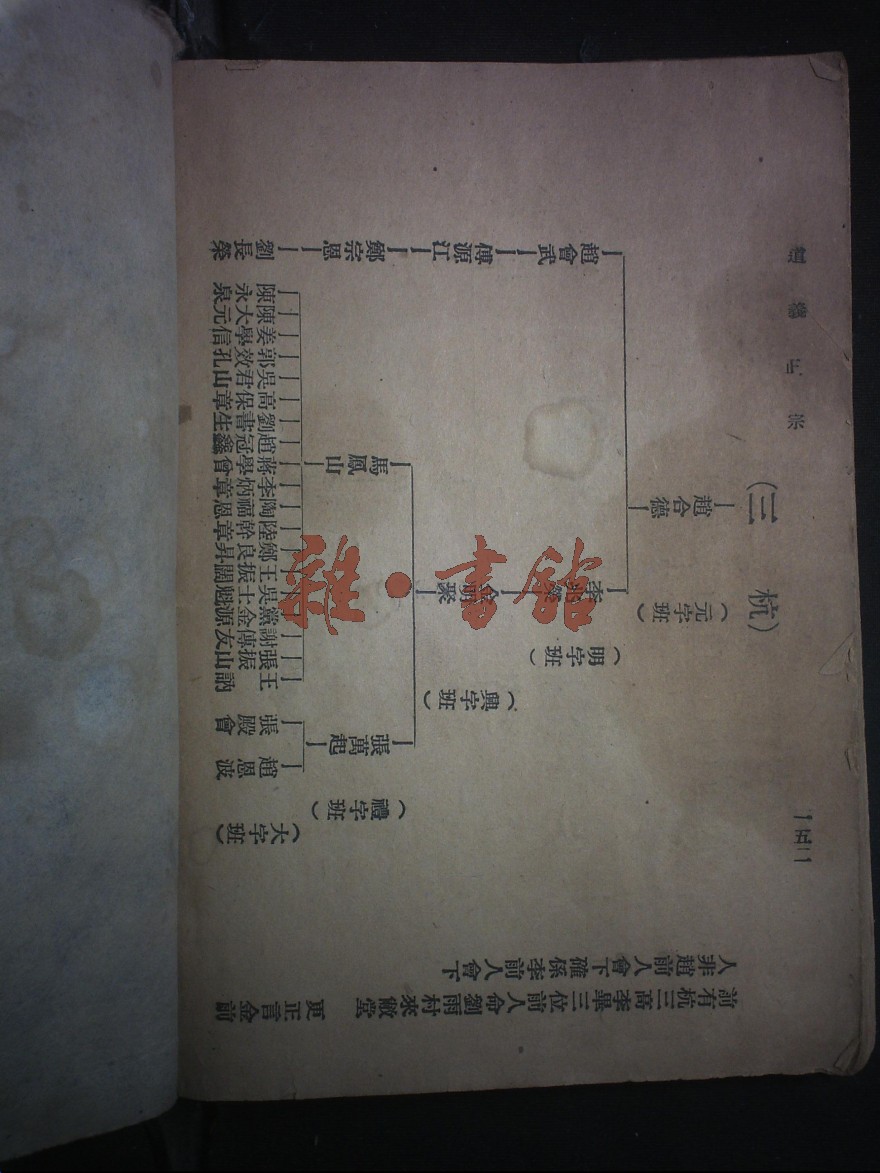 前有杭三高李畢三位前人命劉雨村來敝堂 更正言金前
人非趙前人會下確係李前人會下
(三 杭)
(元字班)
趙合德
(明字班)
趙會武
(興字班)
傅源江
(禮字班)
張萬起
馬鳳山
鄭宗恩
(大字班)
趙恩波
張殿會
王訥
張振山
謝傳友
黨金源
吳士魁
王振閣
鄭良昇
陸幹章
陶福恩
李炳章
蔣學曾
趙冠鑫
劉書生
高保章
吳君山
郭效孔
姜學信
陳大元
陳永泉
劉長榮
雜·書館